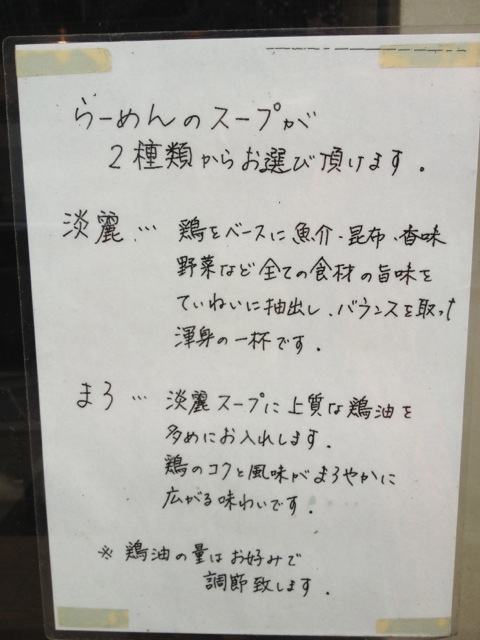 らーめんのスープが
2種類からお選び頂けます。
淡麗… 鶏をベースに魚介、昆布、香味
野菜など全ての食材の旨味を
ていねいに抽出し、バランスを取った
渾身の一杯です。
まろ… 淡麗スープに上質な鶏油を
多めにお入れします。
鶏のコクと風味がまろやかに
広がる味わいです。
※ 鶏油の量はお好みで
調節致します。